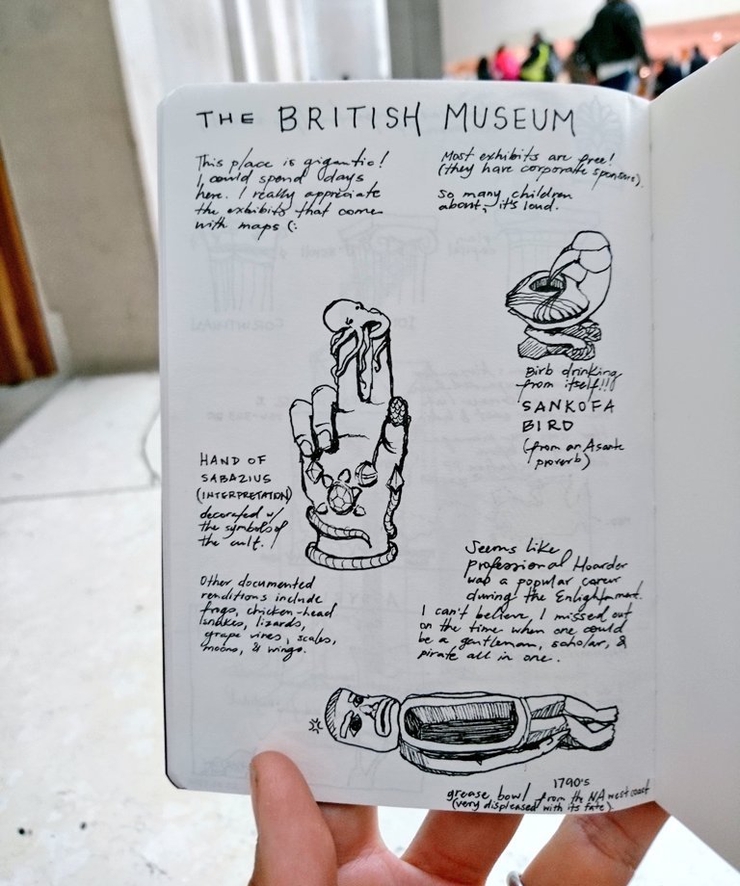 THE BRITISH MUSEUM
This place is gigantic!
I could spend days
here. I really appriciate
the exhibits that come
with maps (:
Most exhibits are free!
(they have corporate sponsors).
So many children
about, it's loud.
Birb drinking
from itself!!!
SANKOFA
BIRD
(from an Asante
proverb)
HAND OF
SABAZIUS
(INTERPRETATION)
decorated w/
the symbols of
the cult.!
Other documented
renditions include
frogs, chicken-head
snakes, lizards,
grape vines, scales,
moons, & wings.
Seems like
professional Hoarder
was a popular career
during the Enlightenment.
I can't believe I missed out
on the time when one could
be a gentleman, scholar, &
pirate all in one.
1790's
grease bowl from the NA west coast
(very displeased with its fate)